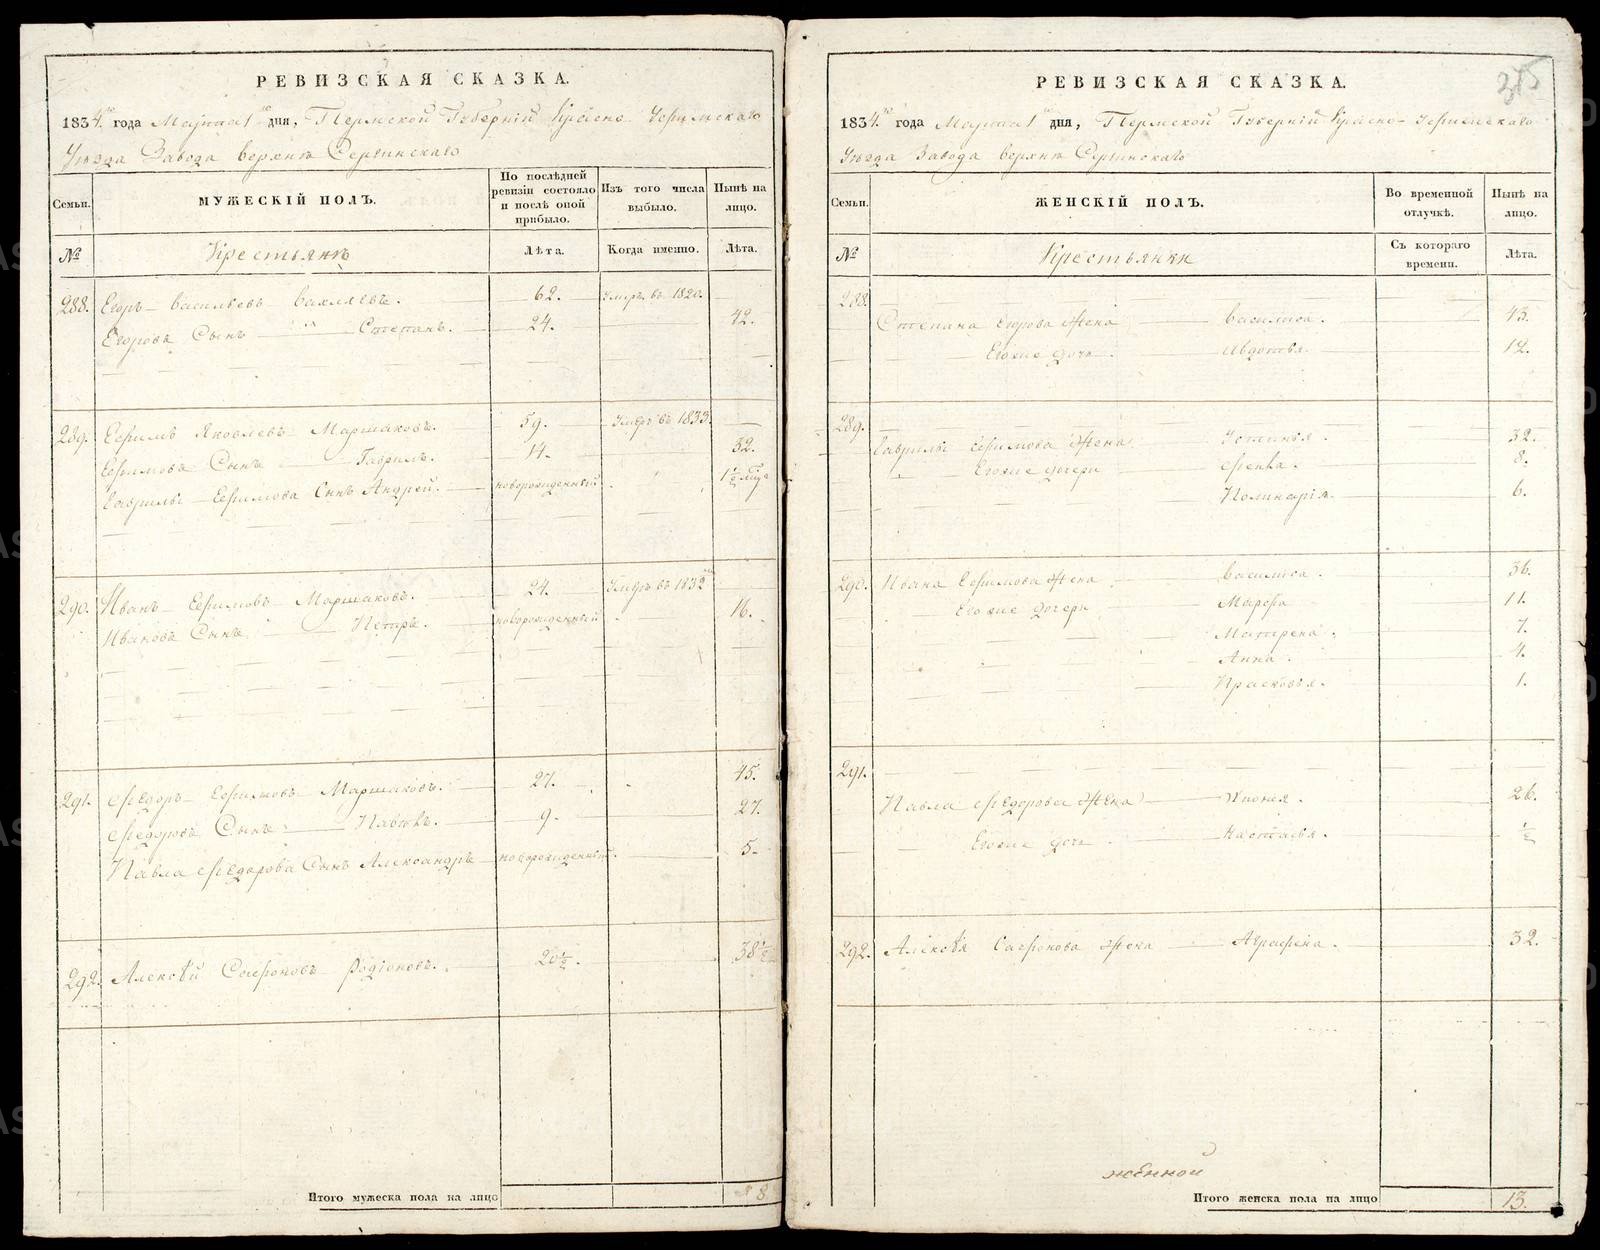 РЕВИЗСКАЯ СКАЗКА.
1834.го года Марта 1го дня, Пермской Губерніи Красно Уфимскаго
Уѣзда Завода верхне Сергинскаго
Семьи.
МУЖЕСКІЙ ПОЛЪ.
По послѣдней ревизіи состояло и послѣ оной прибыло.
Изъ того числа выбыло.
Нынѣ на лицо.
№
Крестьянѣ
Лѣта.
Когда именно.
Лѣта.
288. Егоръ Васильевъ 62. Умръ въ 1820.
Егорова Сынъ Степанъ. 24. 42.
289. Ефимъ Яковлевъ Маршаковъ. 59. Умеръ въ 1833
Ефимова Сынъ Гаврилъ. 14. 32.
Гаврилы Ефимова Сынъ Андрей. новорожденный 1 1/2
290. Иванъ Ефимовъ Маршаковъ. 24. Умеръ въ 1832
Иванова Сынъ Петръ. новорожденный 16.
291. Федоръ Ефимовъ Маршаковъ. 27. 45.
Федорова Сынъ Павелъ. 9. 27.
Павла Федорова Сынъ Александръ новорожденный. 5.
292. Алексѣй Сафоновъ Родіоновъ. 20 1/2. 38 1/2
Итого мужеска пола на лицо 8
375
РЕВИЗСКАЯ СКАЗКА.
1834.го года Марта 1го дня, Пермской Губерніи Красно Уфимскаго
Уѣзда Завода верхне Сергинскаго
Семьи.
ЖЕНСКІЙ ПОЛЪ.
Во временной отлучкѣ.
Нынѣ на лицо.
№
Крестьянки
Съ котораго времени.
Лѣта.
288.
Степана Егорова Жена Василиса. 45.
Егоже дочь Авдотья. 12.
289.
Гаврилы Ефимова Жена Устинья. 32.
Егоже дочери Фекла. 8.
Полинарія. 6.
290. Ивана Ефимова Жена Василиса. 36.
Егоже дочери Марфа 11.
Матрена. 7.
Анна. 4.
Прасковья. 1.
291.
Павла Федорова Жена 26.
Егоже дочь Настасья. 1/2
292. Алексѣя Сафонова Жена Аграфена. 32.
Итого женска пола на лицо 13.